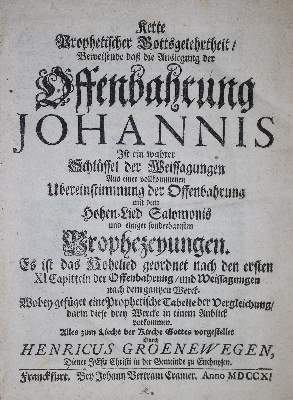 Kette
Prophetischer Gottsgelehrtheit/
Beweisende daß die Auslegung der
Offenbahrung
JOHANNIS
Ist ein wahrer
Schlüssel der Weissagungen
Aus einer vollkommenen
Ubereinstimmung der Offenbahrung
mit dem
Hohen-Lied Salomonis
und einiger sonderbaresten
Prophezeyungen.
Es ist das Hohelied geordnet nach den ersten
XI Capitteln der Offenbahrung/und Weissagungen
nach dem gantzen Werck
Wobey gefüget eine Prophetische Tabelle der Vergleichung/
darin diese drey Werck in einem Anblick
vorkommen.
Alles zum Liecht der Kirche Gottes vorgestellet
Durch
HENRICUS GROENEWEGEN,
Diener JEsu Christi in der Gemeinde zu Enchuysen.
Franckfurt. Bey Johann Bertram Cramer. Anno MDCCXI